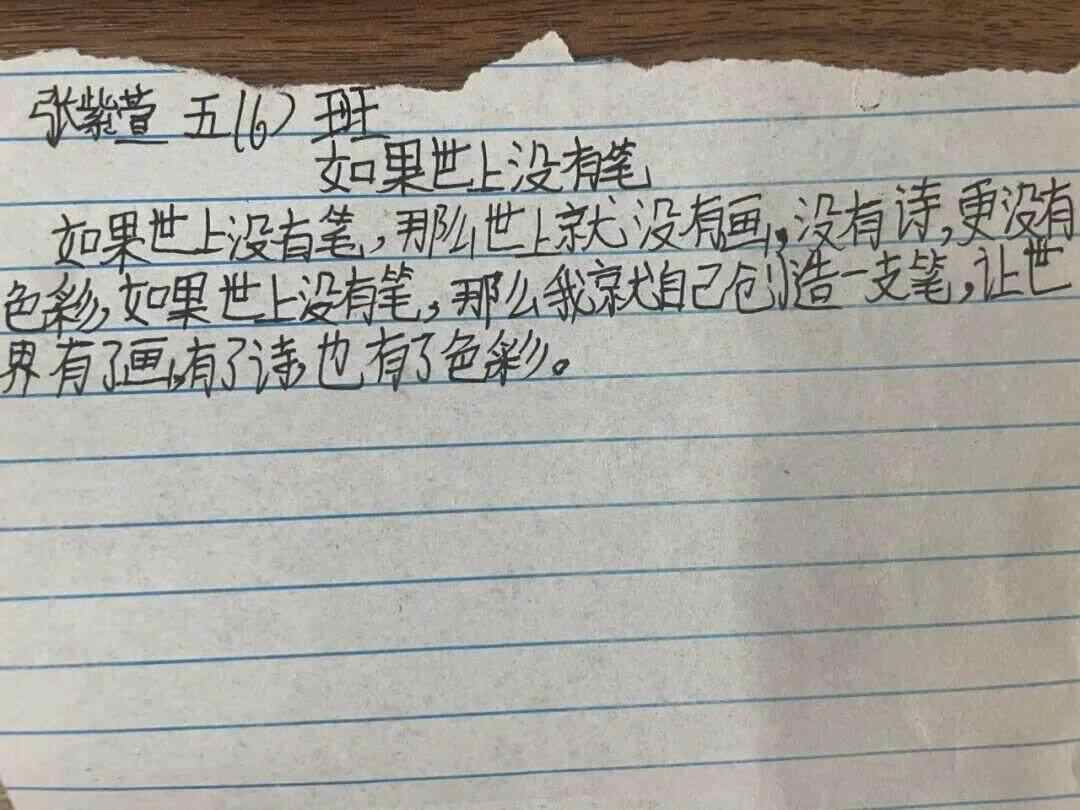 张紫萱 五(6) 班
如果世上没有笔
如果世上没有笔,那么世上就没有画,没有诗,更没有
色彩,如果世上没有笔,那么我就自己创造一支笔,让世
界有了画,有了诗,也有了色彩。